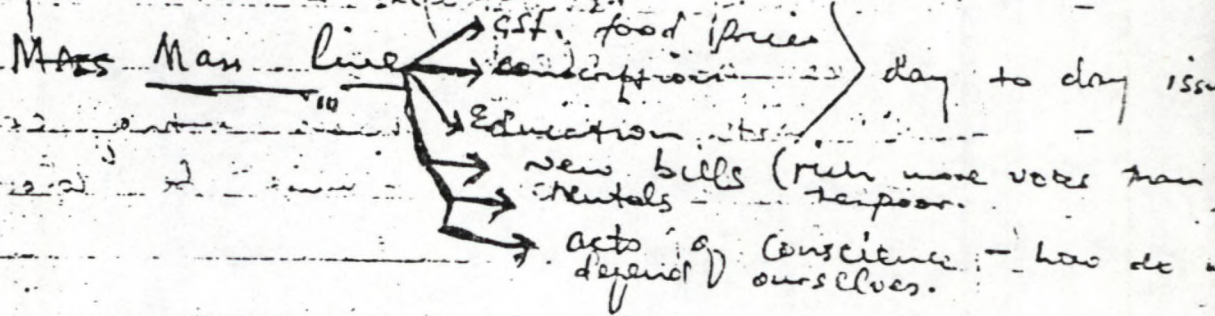 GST, food Prices
Mass Mass line conscription day to day issu
Education etc
new bills (rich more votes than
rentals the poor.
acts of conscience - how do
defend ourselves.